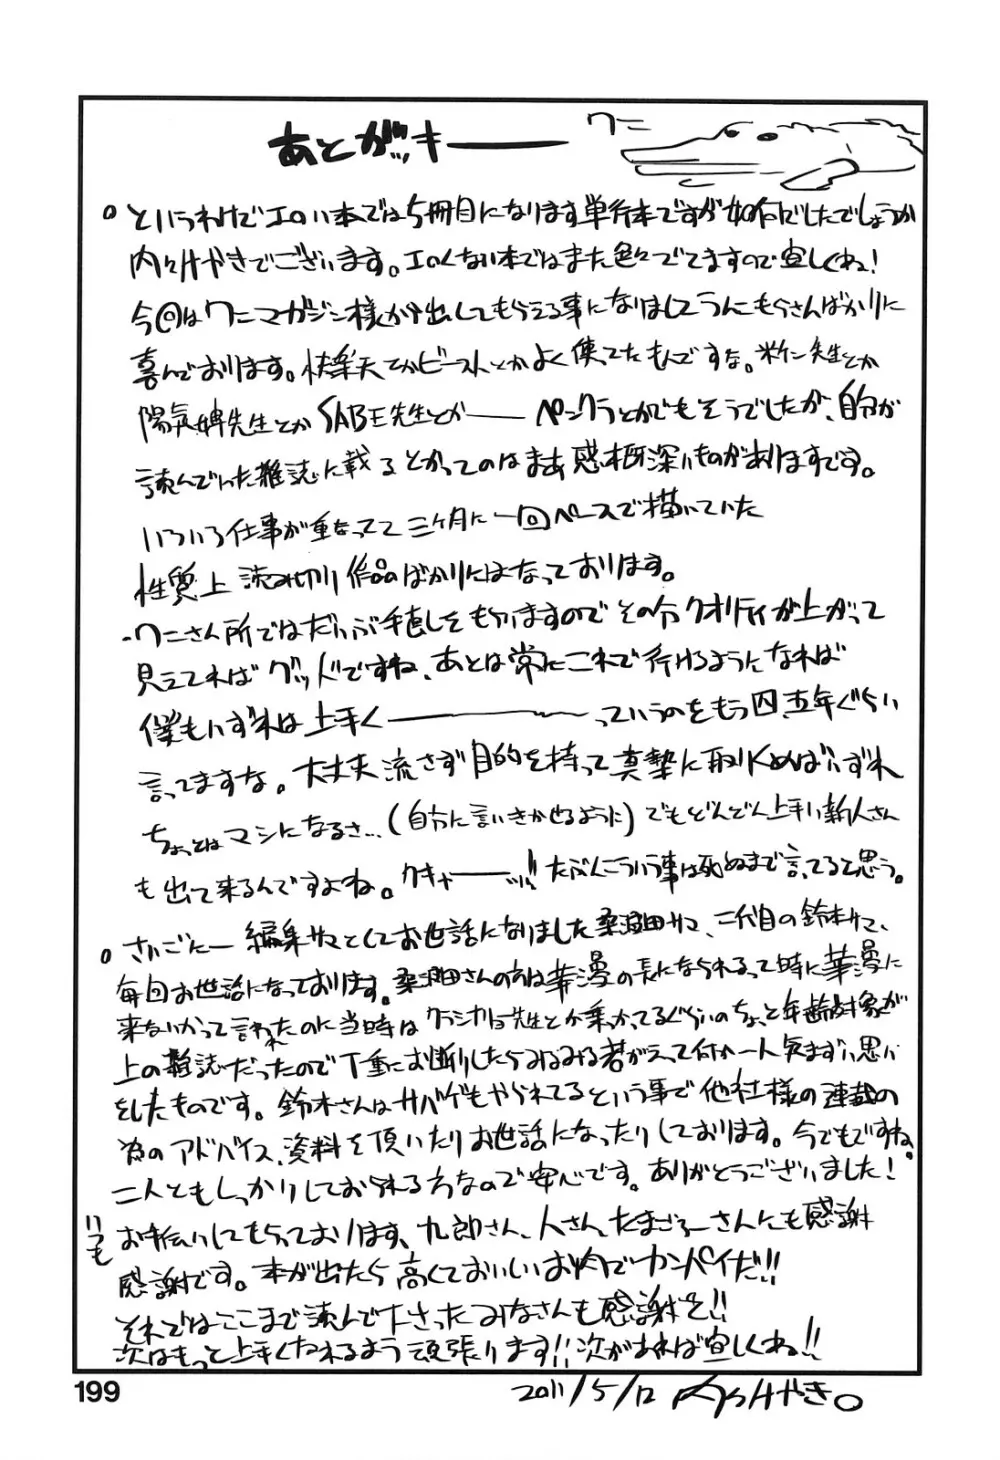 あとがッキー
ワニ
。というわけでエロい本では5冊目になります単行本ですが如何でしたでしょうか
内々けやきでございます。エロくない本ではまた色々でてますので宜しくね!
今回はワニマガジン様から出してもらえる事になりましてうんにもらさんばかりに
喜んでおります。快楽天とかビーストとかよく使ってたもんですな。米ケン先生とか
陽気婢先生とかSABE先生とか── ペンクラとかでもそうでしたが、自分が
読んでいた雑誌に載るとかってのはまあ感慨深いものがありますです。
いろいろ仕事が重なってて三ヶ月に一回ペースで描いていた
性質上 読み切り作品ばかりにはなっております。
・ワニさん所ではだいぶ手直しをもらいますのでその分クオリティが上がって
見えてればグッドですね、あとは常にこれで行けるようになれば
僕もいずれは上手く────っていうのをもう四、五年ぐらい
言ってますな。大丈夫 流さず目的を持って真摯に取りくめばいずれ
ちょっとはマシになるさ…(自分に言いきかせるように)でもどんどん上手い新人さん
も出て来るんですよね。クキャーーッッ!! たぶんこういう事は死ぬまで言ってると思う。
。さいごにー 編集サマとしてお世話になりました桑沼田サマ、二代目の鈴木サマ、
毎回お世話になっております。さんの方は華漫の長になられるって時に華漫に
来ないかって言われたのに当時はクジラ先生とか乗っかってるぐらいのちょっと年齢対象が
上の雑誌だったので丁重にお断りしたらみるみる若がえって何か一人気まずい思い
をしたものです。鈴木さんはサバゲもやられてるという事で他社様の連載の
為のアドバイス、資料を頂いたりお世話になったりしております。今でもですね。
二人ともしっかりしておられる方なので安心です。ありがとうございました!
いつも お手伝いしてもらっております、九郎さん、人さん、たまごろーさんにも感謝
感謝です。本が出たら高くておいしいお肉でカンパイだ!!
それではここまで読んで下さったみなさんも感謝を!!
次はもっと上手くなれるよう頑張ります!!次があれば宜しくね!!
2011/5/12 内々けやき。
199